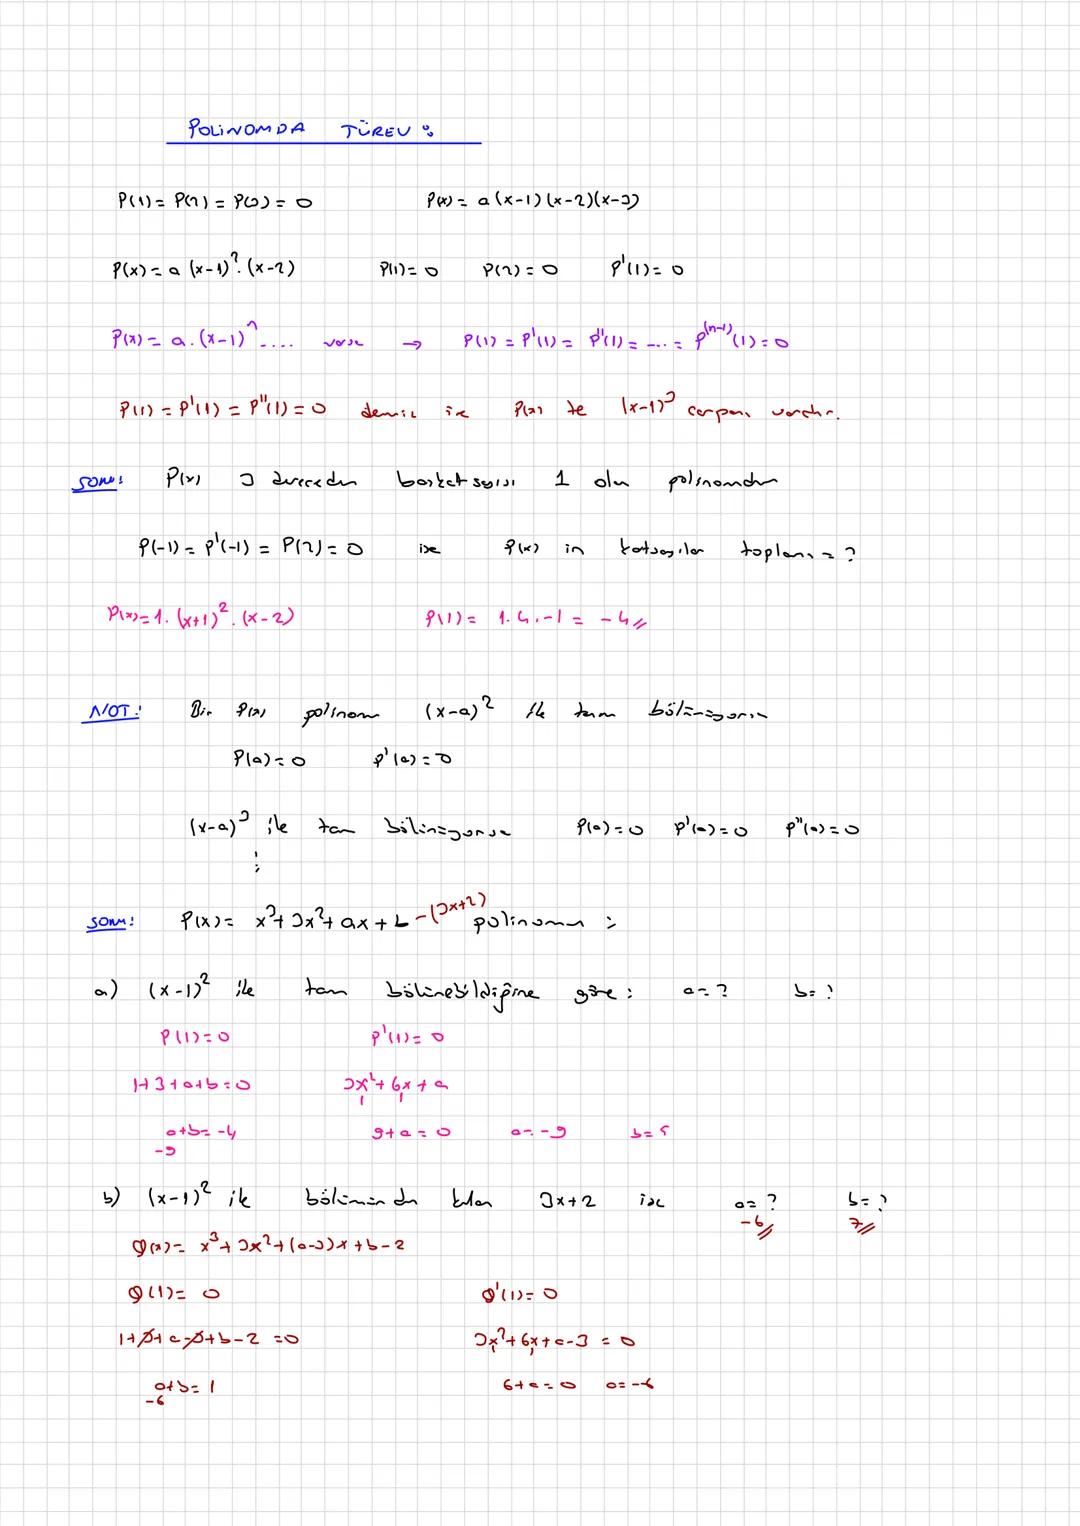 POLİNOMDA TÜREV :
P(1) = P(2) = P(3) = 0 P(x) = a(x-1)(x-2)(x-3)
P(x) = a (x-1)². (x-2) P(1) = 0 P(2) = 0 P'(1) = 0
P(x) = a.(x-1)ⁿ .... varsa → P(1) = P'(1) = P''(1) = .... = P⁽ⁿ⁻¹⁾(1) = 0
P(1) = P'(1) = P''(1) = 0 demiş ise P(x) te (x-1)³ çarpanı vardır.
SORU: P(x) 3 dereceden başkatsayısı 1 olan polinomdur
P(-1) = P'(-1) = P(2) = 0 ise P(x) in katsayılar toplamı = ?
P(x) = 1. (x+1)². (x-2) P(1) = 1.4.-1 = -4
NOT: Bir P(x) polinom (x-a)² ile tam bölünüyorsa
P(a) = 0 P'(a) = 0
(x-a)³ ile tam bölünüyorsa P(a) = 0 P'(a) = 0 P''(a) = 0
⋮
SORU: P(x) = x³ + 3x² + ax + b -(3x+2) polinomu :
a) (x-1)² ile tam bölünebildiğine göre : a = ? b = ?
P(1) = 0 P'(1) = 0
1+3+a+b = 0 3x² + 6x + a
1 1
a+b = -4 9+a = 0 a = -9 b = 5
-9
b) (x-1)² ile bölümünden kalan 3x+2 ise a = ? b = ?
-6 7
Q(x) = x³ + 3x² + (a-3)x + b-2
Q(1) = 0 Q'(1) = 0
1+3+a-3+b-2 = 0 3x² + 6x + a-3 = 0
1 1
a+b = 1 6+a = 0 a = -6
-6